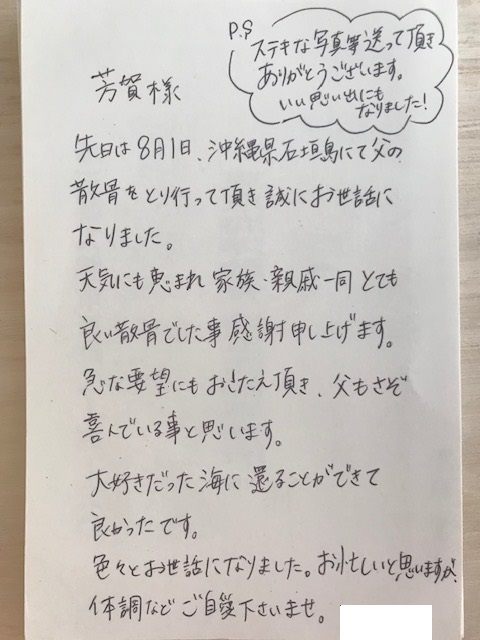 P.S
ステキな写真等送って頂き
ありがとうございます。
いい思い出にも
なりました！
芳賀様
先日は8月1日、沖縄県石垣島にて父の
散骨をとり行って頂き誠にお世話に
なりました。
天気にも恵まれ家族・親戚一同とても
良い散骨でした事感謝申し上げます。
急な要望にもおこたえ頂き、父もさぞ
喜んでいる事と思います。
大好きだった海に還ることができて
良かったです。
色々とお世話になりました。お忙しいと思いますが、
体調などご自愛下さいませ。